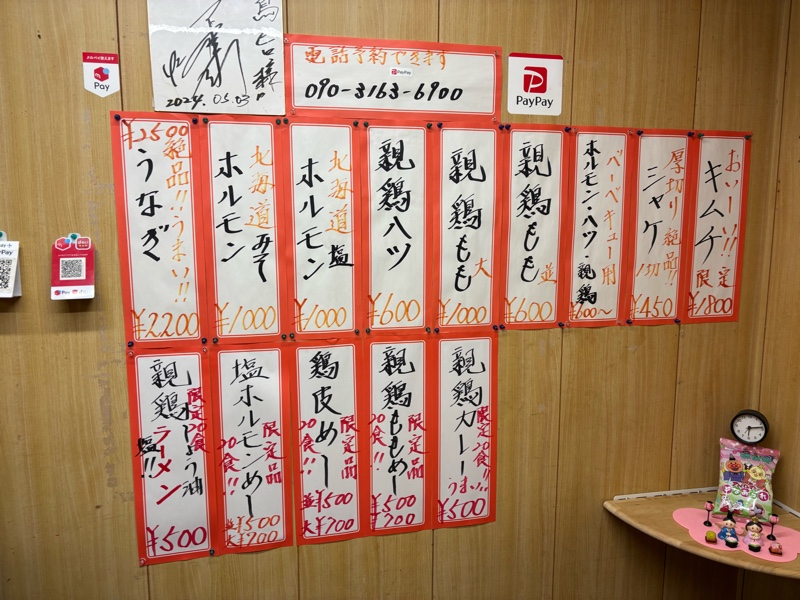 2024.05.03
電話予約できます
PayPay
090-3163-6900
PayPay
Pay
おいしーい!!
キムチ
限定
¥1800
厚切り絶品!!
シャケ
1切
¥450
バーベキュー用
ホルモン・ハツ・親鶏
¥600〜
親鶏もも
並
¥600
親鶏もも
大
¥1000
親鶏ハツ
¥600
北海道
ホルモン
塩
¥1000
北海道
ホルモン
みそ
¥1000
¥2500
絶品!!うまい!!
うなぎ
¥2200
親鶏カレー
限定20食!!
うまい!!
¥500
親鶏ももめし
限定品
20食!!
¥500
700
鶏皮めし
限定品
20食!!
並¥500
大¥700
塩ホルモンめし
限定品
20食!!
並¥500
大¥700
親鶏しょう油
限定20食
ラーメン
塩!!
¥500